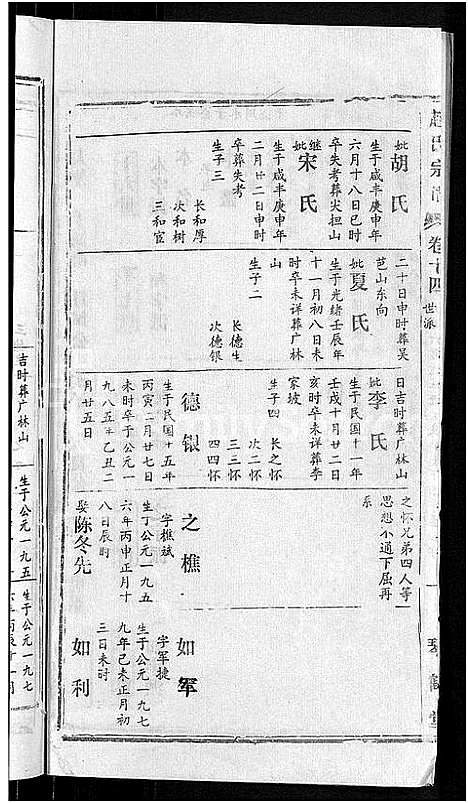 赵氏宗谱 卷十四 世派
妣胡氏
生于咸丰庚申年
六月十八日巳时
卒失考葬尖担山
继妣宋氏
生于咸丰庚申年
二月廿二日申时
卒葬失考
生子三
长和厚
次和树
三和宦
二十日申时葬吴
芭山东向
妣夏氏
生于光绪壬辰年
十一月初八日未
时卒未详葬广林
山
生子二
长德生
次德银
日吉时葬广林山
妣李氏
生于民国十一年
壬戌十月廿二日
亥时卒未详葬李
家坡
生子四
长之怀
次二怀
三三怀
四四怀
德银
生于民国十五年
丙寅二月廿七日
未时卒于公元一
九八五年乙丑二
月廿五日
之怀兄弟四人等
思想不通下届再
系
之樵
字樵斌
生于公元一九五
六年丙申正月十
八日辰时
娶陈冬先
如军
字军捷
生于公元一九七
九年己未正月初
三日未时
如利
琴
吉时葬广林山
生于公元一九五
生于公元一九七